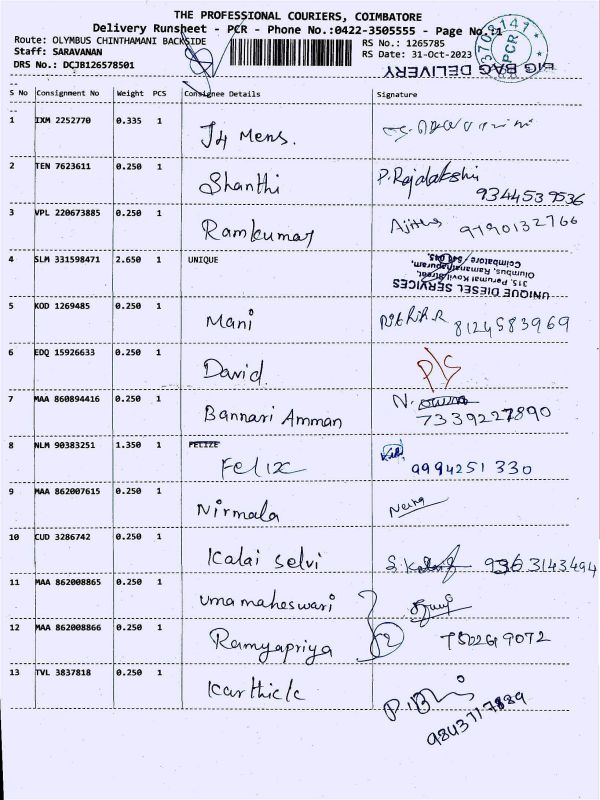 THE PROFESSIONAL COURIERS, COIMBATORE
Delivery Runsheet - PCR - Phone No.:0422-3505555 - Page No.:1
Route: OLYMBUS CHINTHAMANI BACKSIDE RS No.: 1265785
Staff: SARAVANAN RS Date: 31-Oct-2023
DRS No.: DCJB126578501
PCR
BIG BAG DELIVERY
S No Consignment No Weight PCS Consignee Details Signature
1 IXM 2252770 0.335 1 J4 Mens.
2 TEN 7623611 0.250 1 Shanthi P. Rajalakshi
9344539536
3 VPL 220673885 0.250 1 Ramkumar Ajitha 9790132766
4 SLM 331598471 2.650 1 UNIQUE
UNIQUE DIESEL SERVICES
315, Perumal Kovil Street,
Olumbus, Ramanathapuram,
Coimbatore - 641 045.
5 KOD 1269485 0.250 1 Mani 8124583969
6 EDQ 15926633 0.250 1 David P/S
7 MAA 860894416 0.250 1 Bannari Amman N.
7339227890
8 NLM 90383251 1.350 1 FELIZE
Felix 9994251 330
9 MAA 862007615 0.250 1 Nirmala
10 CUD 3286742 0.250 1 Kalai selvi 9363143494
11 MAA 862008865 0.250 1 Uma maheswari
12 MAA 862008866 0.250 1 Ramyapriya 2 7502619072
13 TVL 3837818 0.250 1 Karthick
9843717889